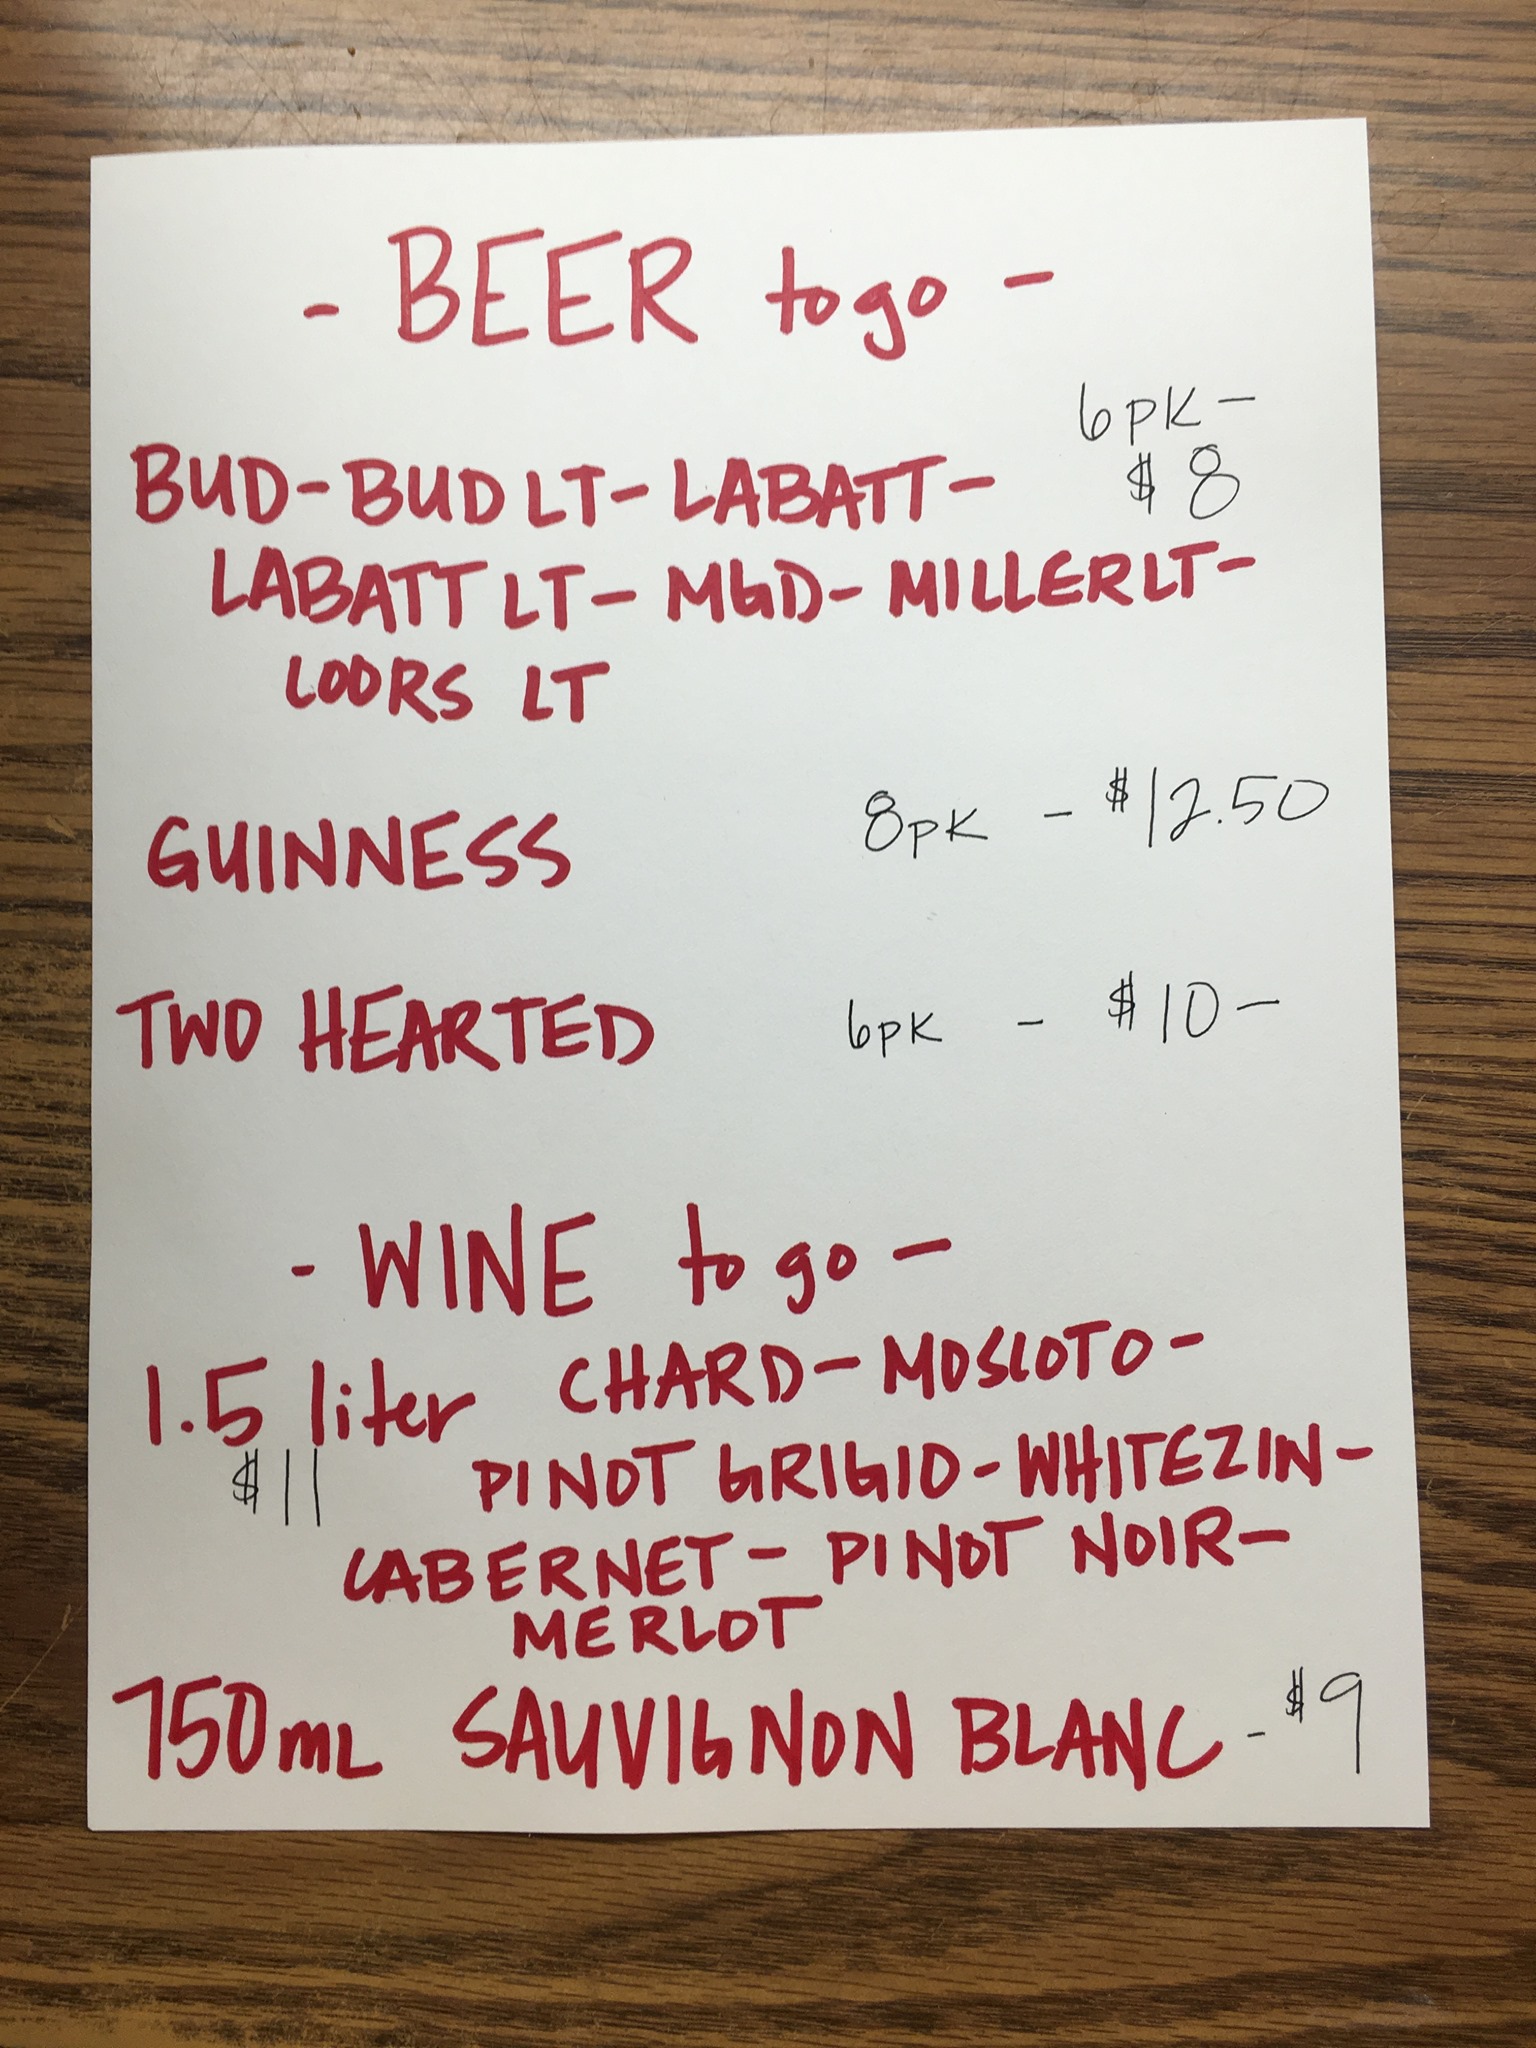 - BEER to go -
6pk -
BUD - BUD LT - LABATT - $8
LABATT LT - MGD - MILLER LT -
COORS LT
GUINNESS 8pk - $12.50
TWO HEARTED 6pk - $10 -
- WINE to go -
1.5 liter CHARD - MOSCOTO -
$11 PINOT GRIGIO - WHITE ZIN -
CABERNET - PINOT NOIR -
MERLOT
750mL SAUVIGNON BLANC - $9